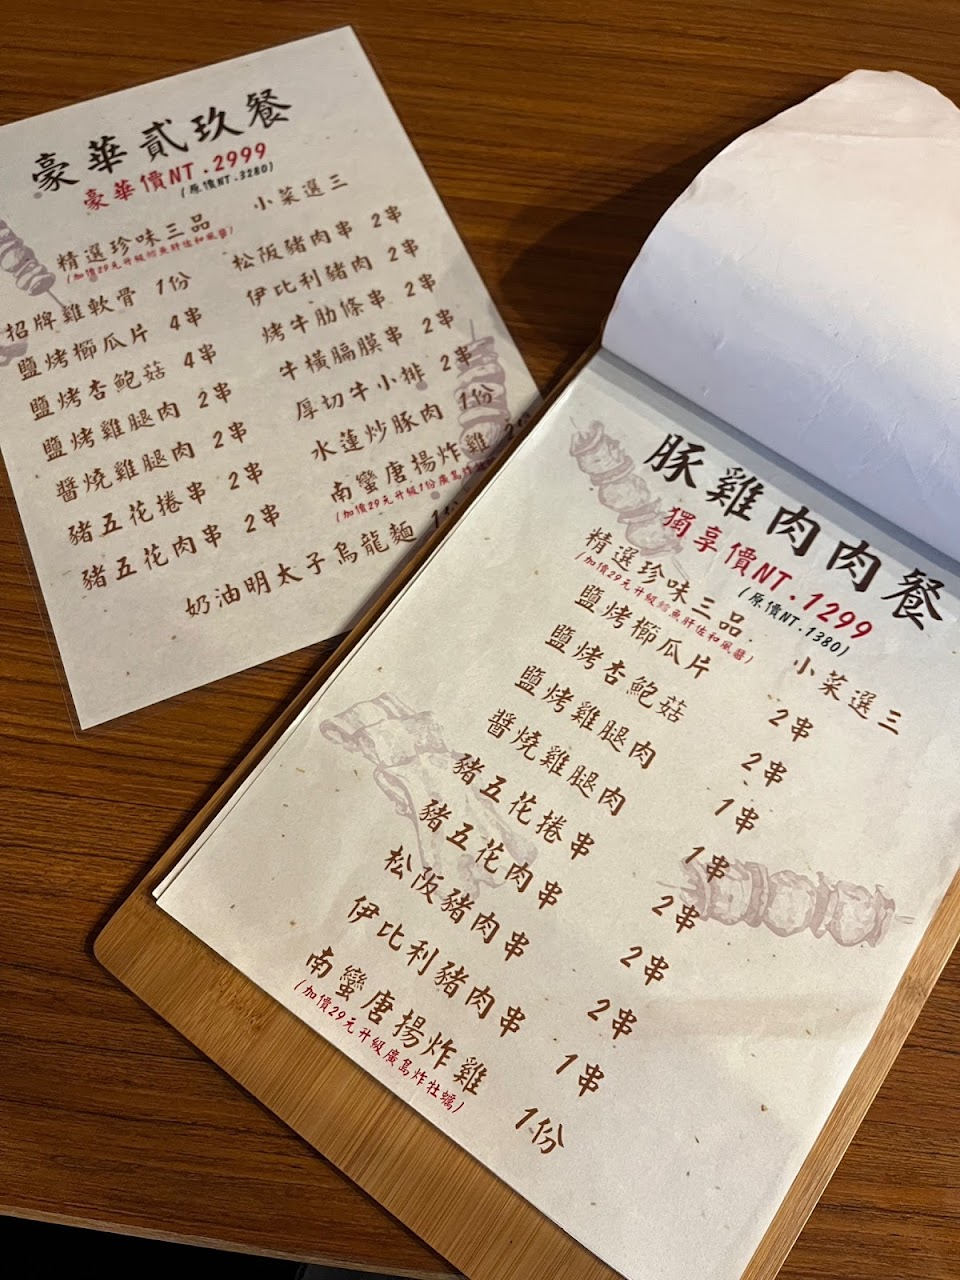 豪華貳玖餐
豪華價NT.2999
(原價NT.3280)
精選珍味三品
小菜選三
(加價29元升級鱈魚肝佐和風醬)
招牌雞軟骨 1份
鹽烤櫛瓜片 4串
鹽烤杏鮑菇 4串
鹽烤雞腿肉 2串
醬燒雞腿肉 2串
豬五花捲串 2串
豬五花肉串 2串
松阪豬肉串 2串
伊比利豬肉 2串
烤牛肋條串 2串
牛橫膈膜串 2串
厚切牛小排 2串
水蓮炒豚肉 1份
南蠻唐揚炸雞
(加價29元升級1份廣島炸牡
奶油明太子烏龍麵
豚雞肉肉餐
獨享價NT.1299
(原價NT.1380)
精選珍味三品.
小菜選三
(加價29元升級鱈魚肝佐和風醬)
鹽烤櫛瓜片 2串
鹽烤杏鮑菇 2串
鹽烤雞腿肉 1串
醬燒雞腿肉 1串
豬五花捲串 2串
豬五花肉串 2串
松阪豬肉串 2串
伊比利豬肉串 1串
南蠻唐揚炸雞 1份
(加價29元升級廣島炸牡蠣)